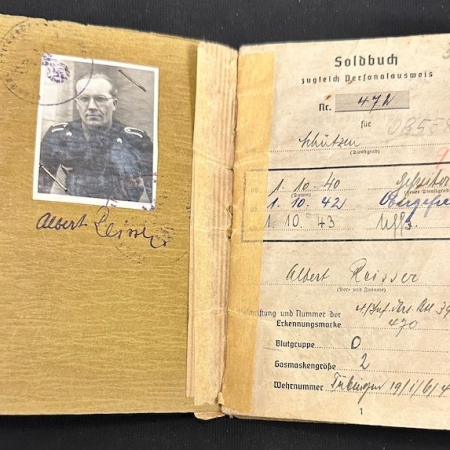 Albert Reisser
Soldbuch
zugleich Personalausweis
Nr. 472
für
Schützen
(Dienstgrad)
1. 10. 40
(Datum) (neuer Dienstgrad)
1. 10. 42
1. 10. 43 Uffz.
Albert Reisser
(Vor- und Zuname)
und Nummer der
Erkennungsmarke 470
Blutgruppe O
Gasmaskengröße 2
Wehrnummer Tübingen 19/1/6/4
1